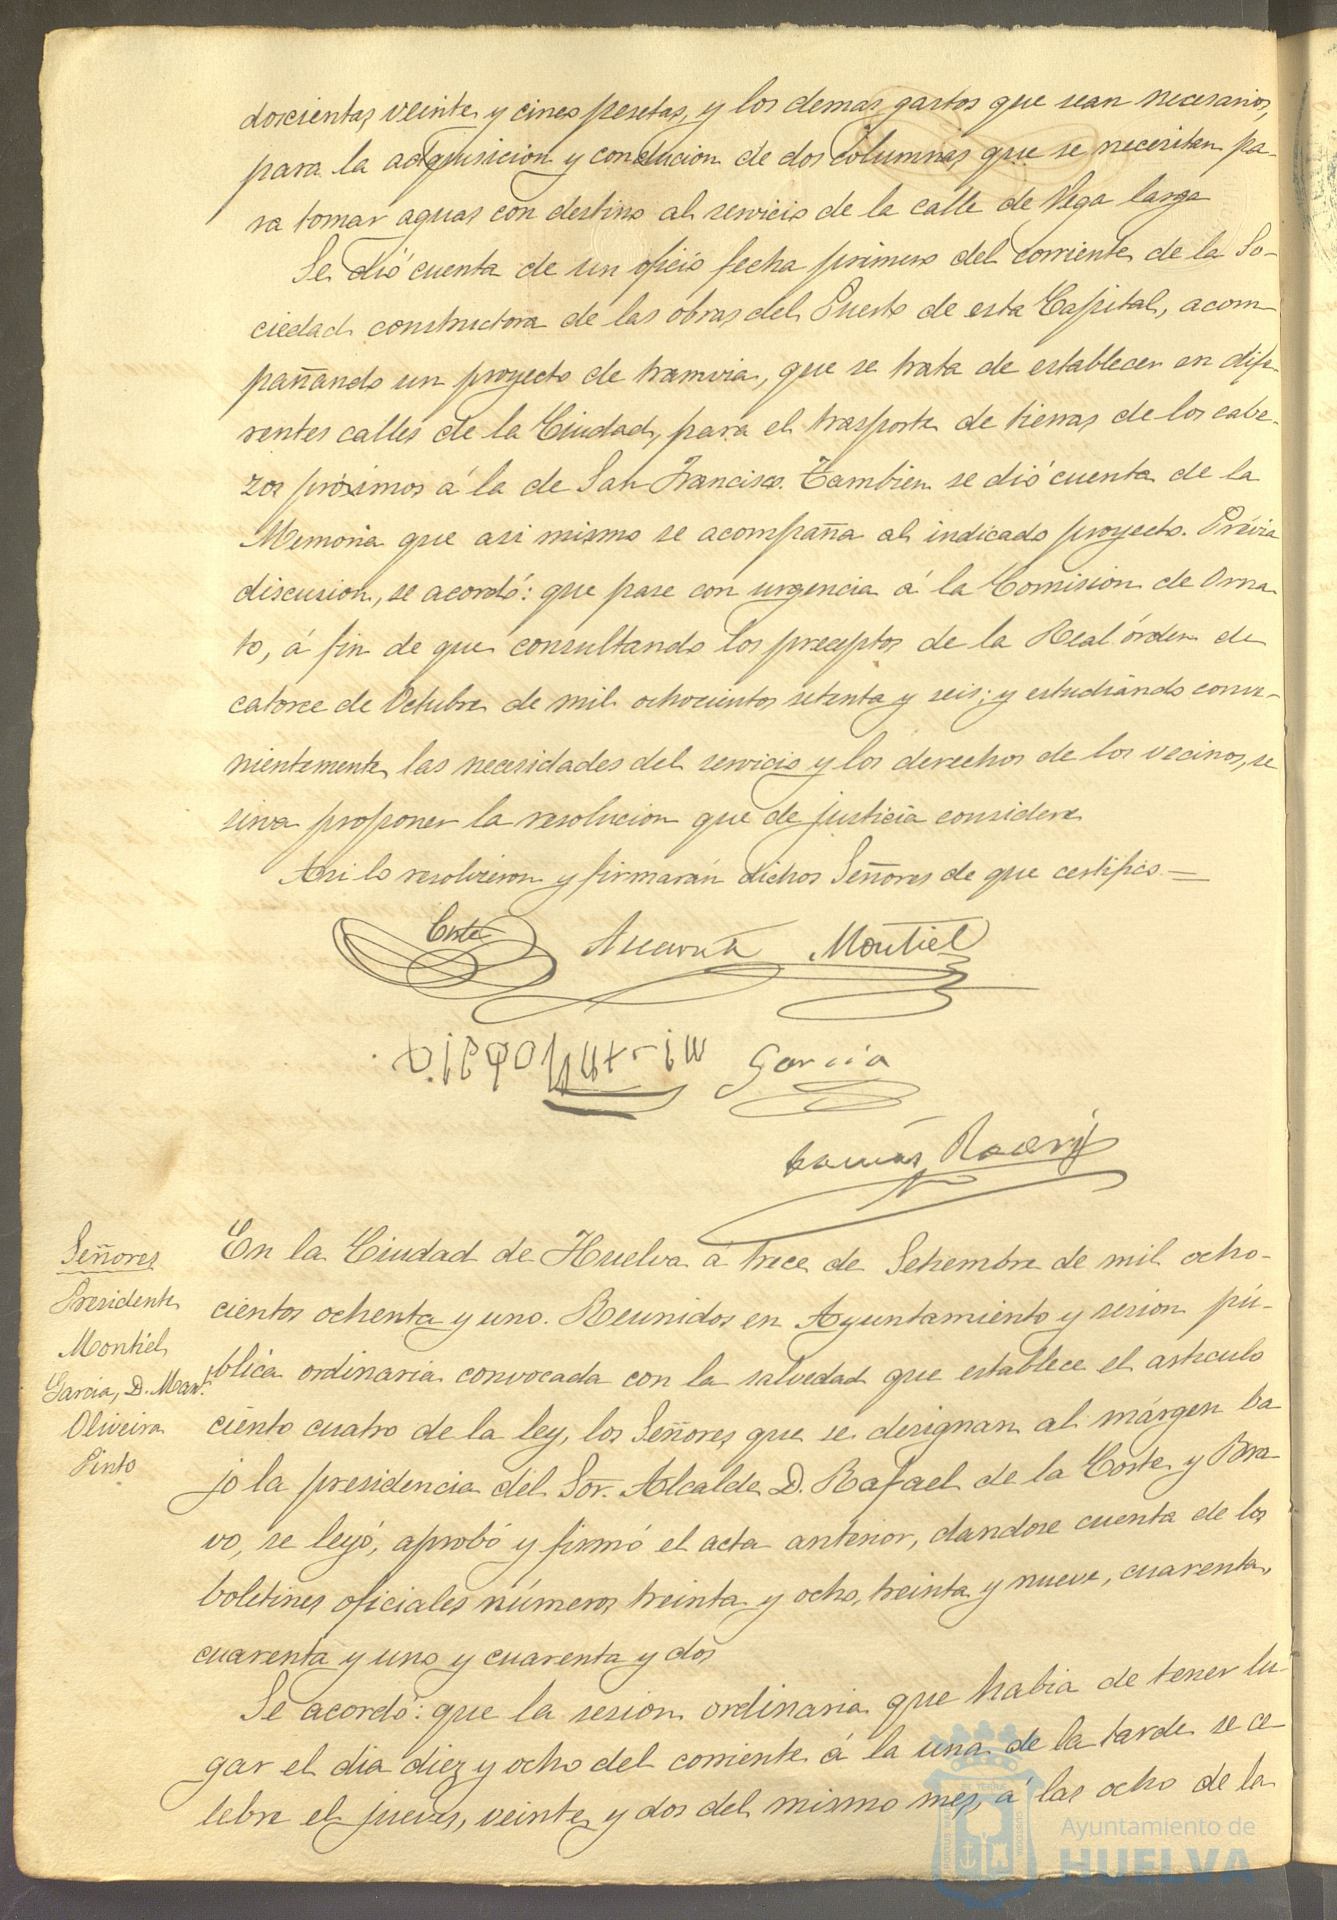 doscientas veinte y cinco pesetas, y los demas gastos que sean necesarios,
para la adquisicion y conducion de dos columnas que se necesitan pa-
ra tomar aguas con destino al servicio de la calle de Vega larga
Se dió cuenta de un oficio fecha primero del corriente de la So-
ciedad constructora de las obras del Puerto de esta Capital, acom
pañando un proyecto de tramvia, que se trata de establecer en dife
rentes calles de la Ciudad, para el trasporte de tierras de los cabe-
zos próximos á la de San Francisco. Tambien se dió cuenta de la
Memoria que asi mismo se acompaña al indicado proyecto. Prévia
discusion, se acordó: que pase con urgencia á la Comision de Orna
to, á fin de que consultando los preceptos de la Real órden de
catorce de Octubre de mil ochocientos setenta y seis; y estudiando conve-
nientemente las necesidades del servicio y los derechos de los vecinos, se
sirva proponer la resolucion que de justicia considere
Asi lo resolvieron y firmarán dichos Señores de que certifico.=
Coste Montiel
Garcia
Señores
Presidente
Montiel
Garcia, D. Man.l
Oliveira
Pinto
En la Ciudad de Huelva á trece de Setiembre de mil ocho-
cientos ochenta y uno. Reunidos en Ayuntamiento y sesion pú-
blica ordinaria convocada con la salvedad que establece el articulo
ciento cuatro de la ley, los Señores que se designan al márgen ba
jo la presidencia del Sor. Alcalde D. Rafael de la Corte y Bra
vo, se leyó, aprobó y firmó el acta anterior, dandose cuenta de los
boletines oficiales números treinta y ocho, treinta y nueve, cuarenta,
cuarenta y uno y cuarenta y dos
Se acordó: que la sesion ordinaria que habia de tener lu-
gar el dia diez y ocho del corriente á la una de la tarde se ce
lebre el jueves, veinte y dos del mismo mes, á las ocho de la
Ayuntamiento de
HUELVA